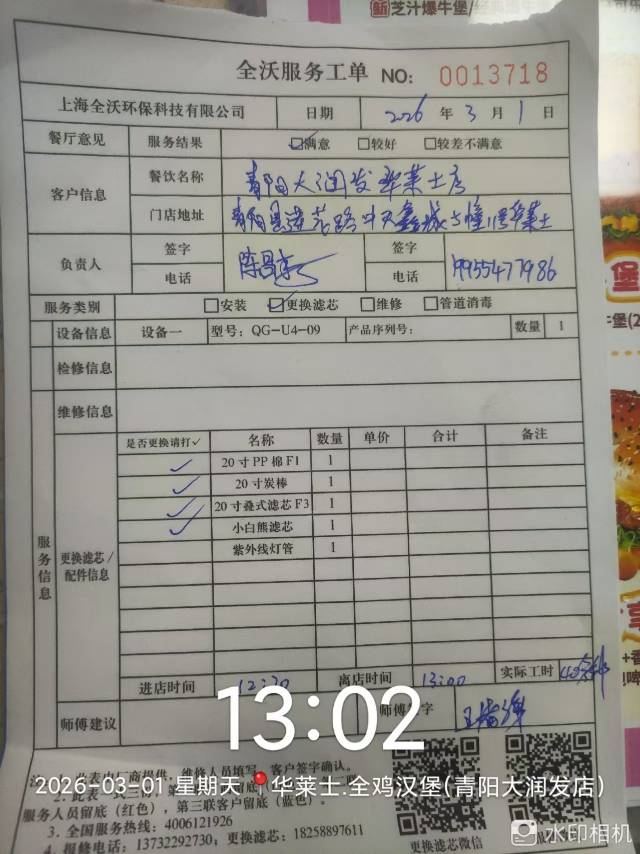 新 芝汁爆牛堡
全沃服务工单 NO: 0013718
上海全沃环保科技有限公司 日期 2026 年 3 月 1 日
餐厅意见 服务结果 ☑满意 □较好 □较差不满意
客户信息 餐饮名称 青阳大润发华莱士店
门店地址 青阳县莲花路中天鑫城5幢1号华莱士
负责人 签字 签字
电话 电话 19955477986
服务类别 □安装 ☑更换滤芯 □维修 □管道消毒
设备信息 设备一 型号: QG-U4-09 产品序列号: 数量 1
检修信息
维修信息
服务信息
更换滤芯/配件信息
是否更换请打✓ 名称 数量 单价 合计 备注
✓ 20寸PP棉F1 1
✓ 20寸炭棒 1
✓ 20寸叠式滤芯F3 1
✓ 小白熊滤芯 1
紫外线灯管 1
进店时间 12:20 离店时间 13:00 实际工时 40分钟
师傅建议 师傅签字
13:02
2026-03-01 星期天 华莱士.全鸡汉堡(青阳大润发店)
注: 1. 此表由厂商提供, 维修人员填写, 客户签字确认。
2. 此表
服务人员留底(红色), 第三联客户留底(蓝色)。
3. 全国服务热线: 4006121926
4. 报修电话: 13732292730, 更换滤芯: 18258897611
更换滤芯微信
水印相机